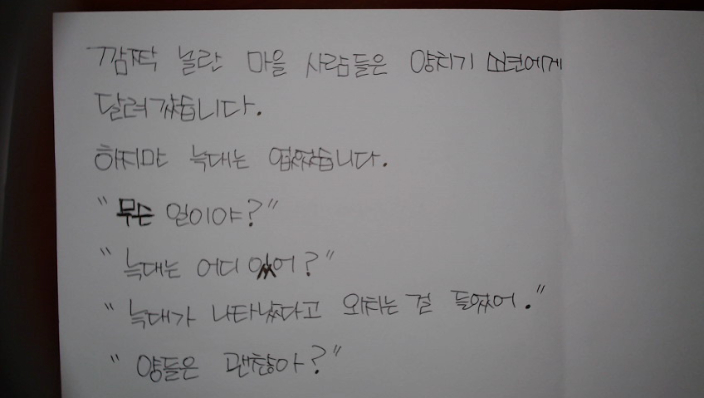 깜짝 놀란 마을 사람들은 양치기 소년에게
달려갔습니다.
하지만 늑대는 없었습니다.
"무슨 일이야?"
"늑대는 어디 있어?"
"늑대가 나타났다고 외치는 걸 들었어."
"양들은 괜찮아?"